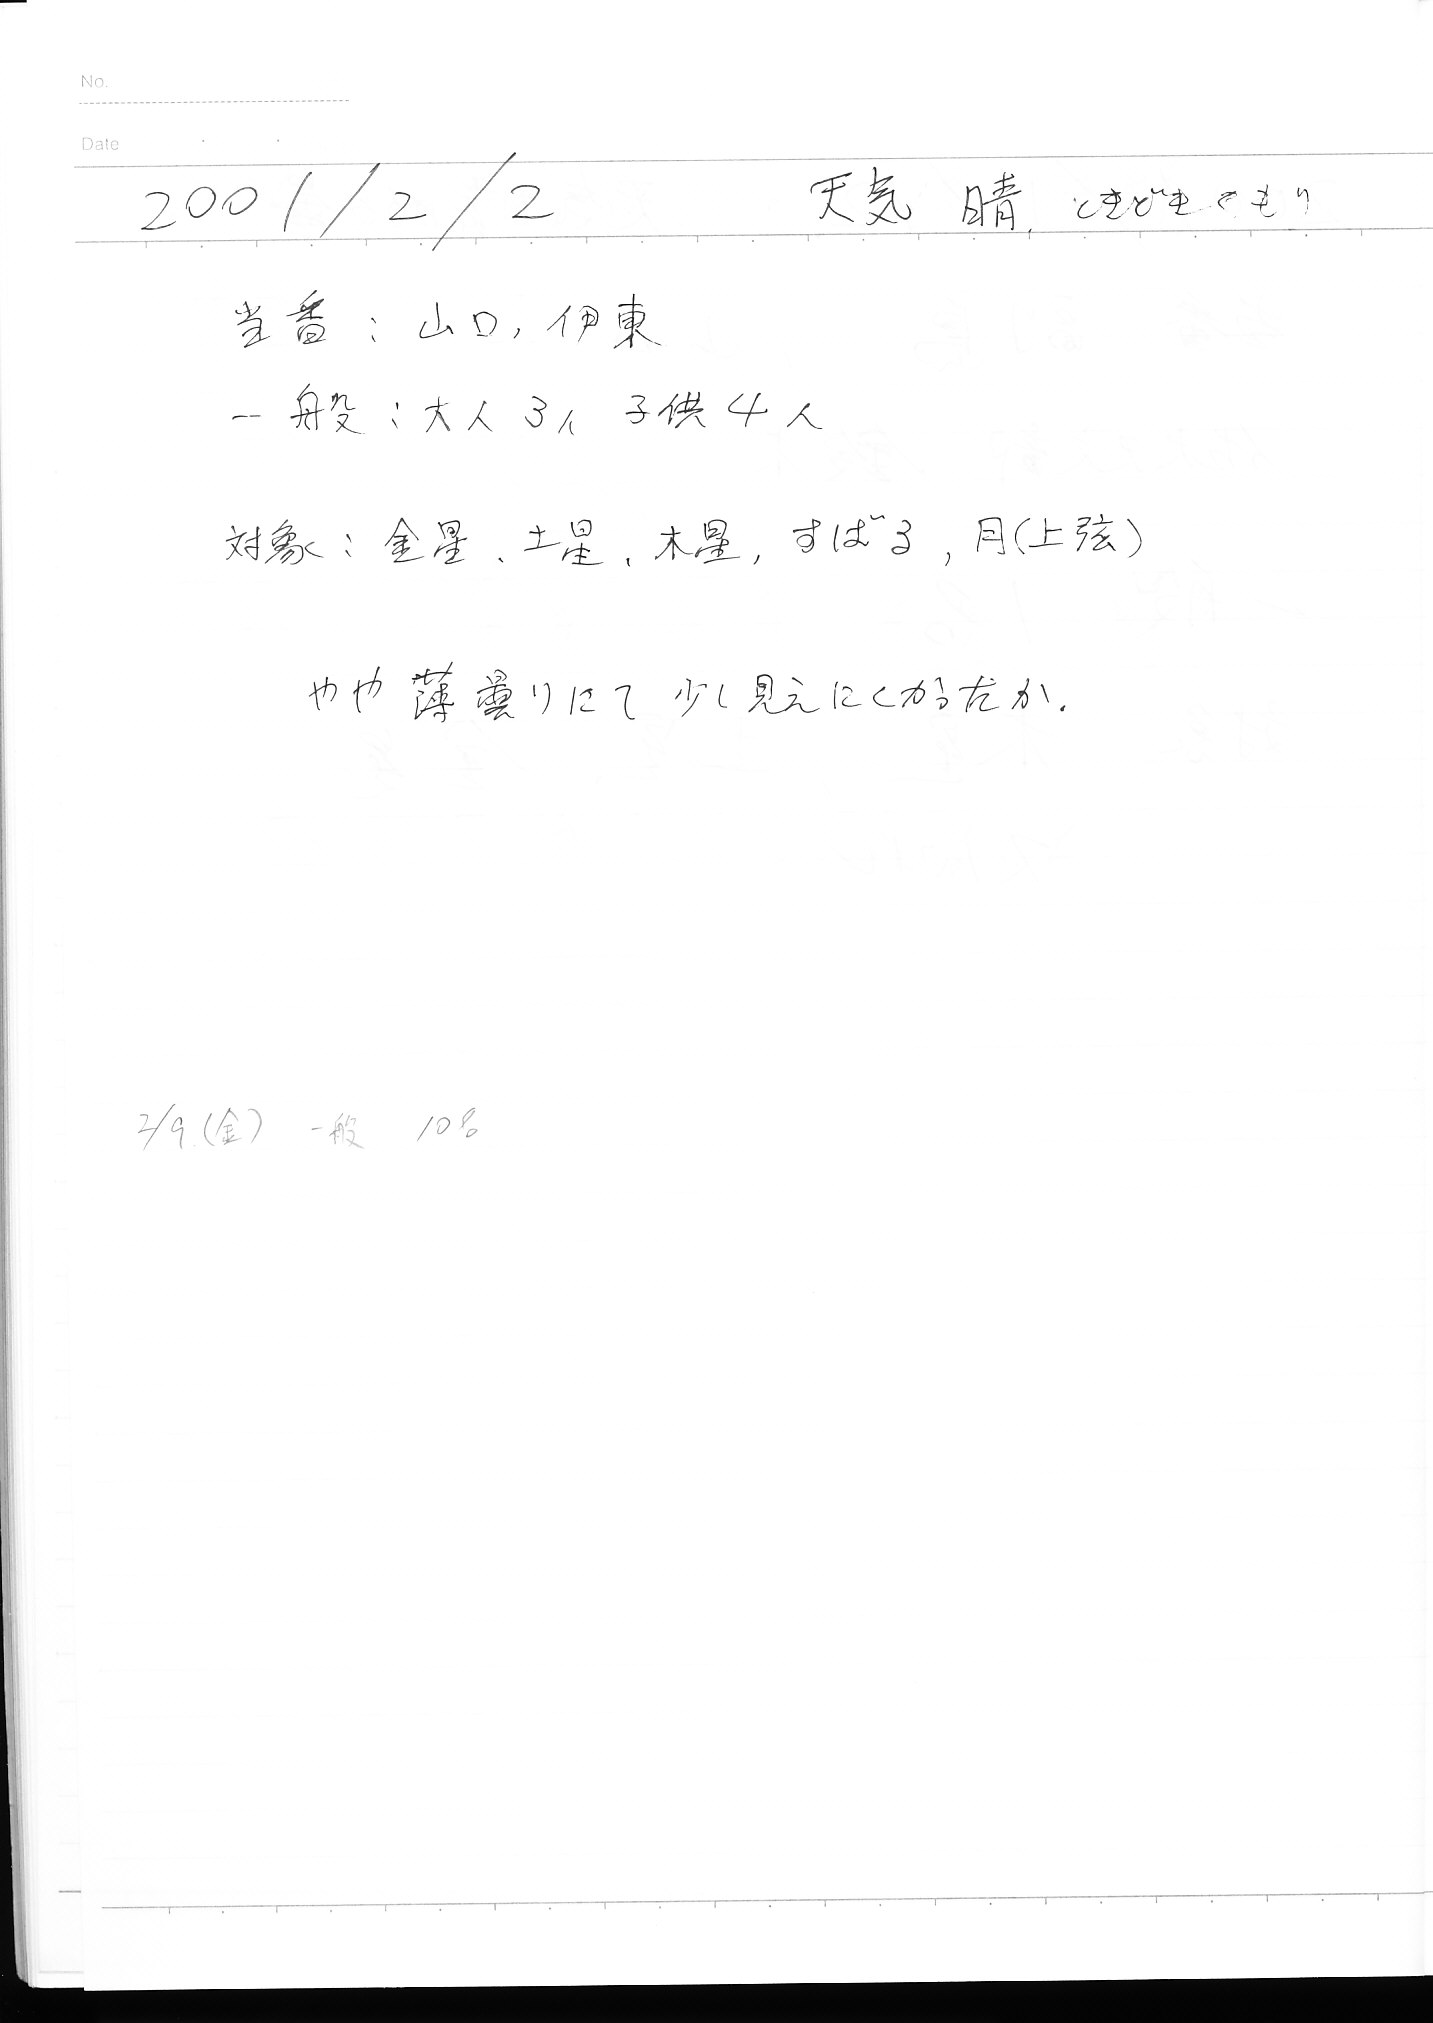 No.
Date
2001/2/2 天気 晴、ときどきくもり
当番：山口，伊東
一般：大人3人 子供4人
対象：金星、土星、木星，すばる，月(上弦)
やや薄曇りにて少し見えにくかったか．
2/9(金) 一般 10名